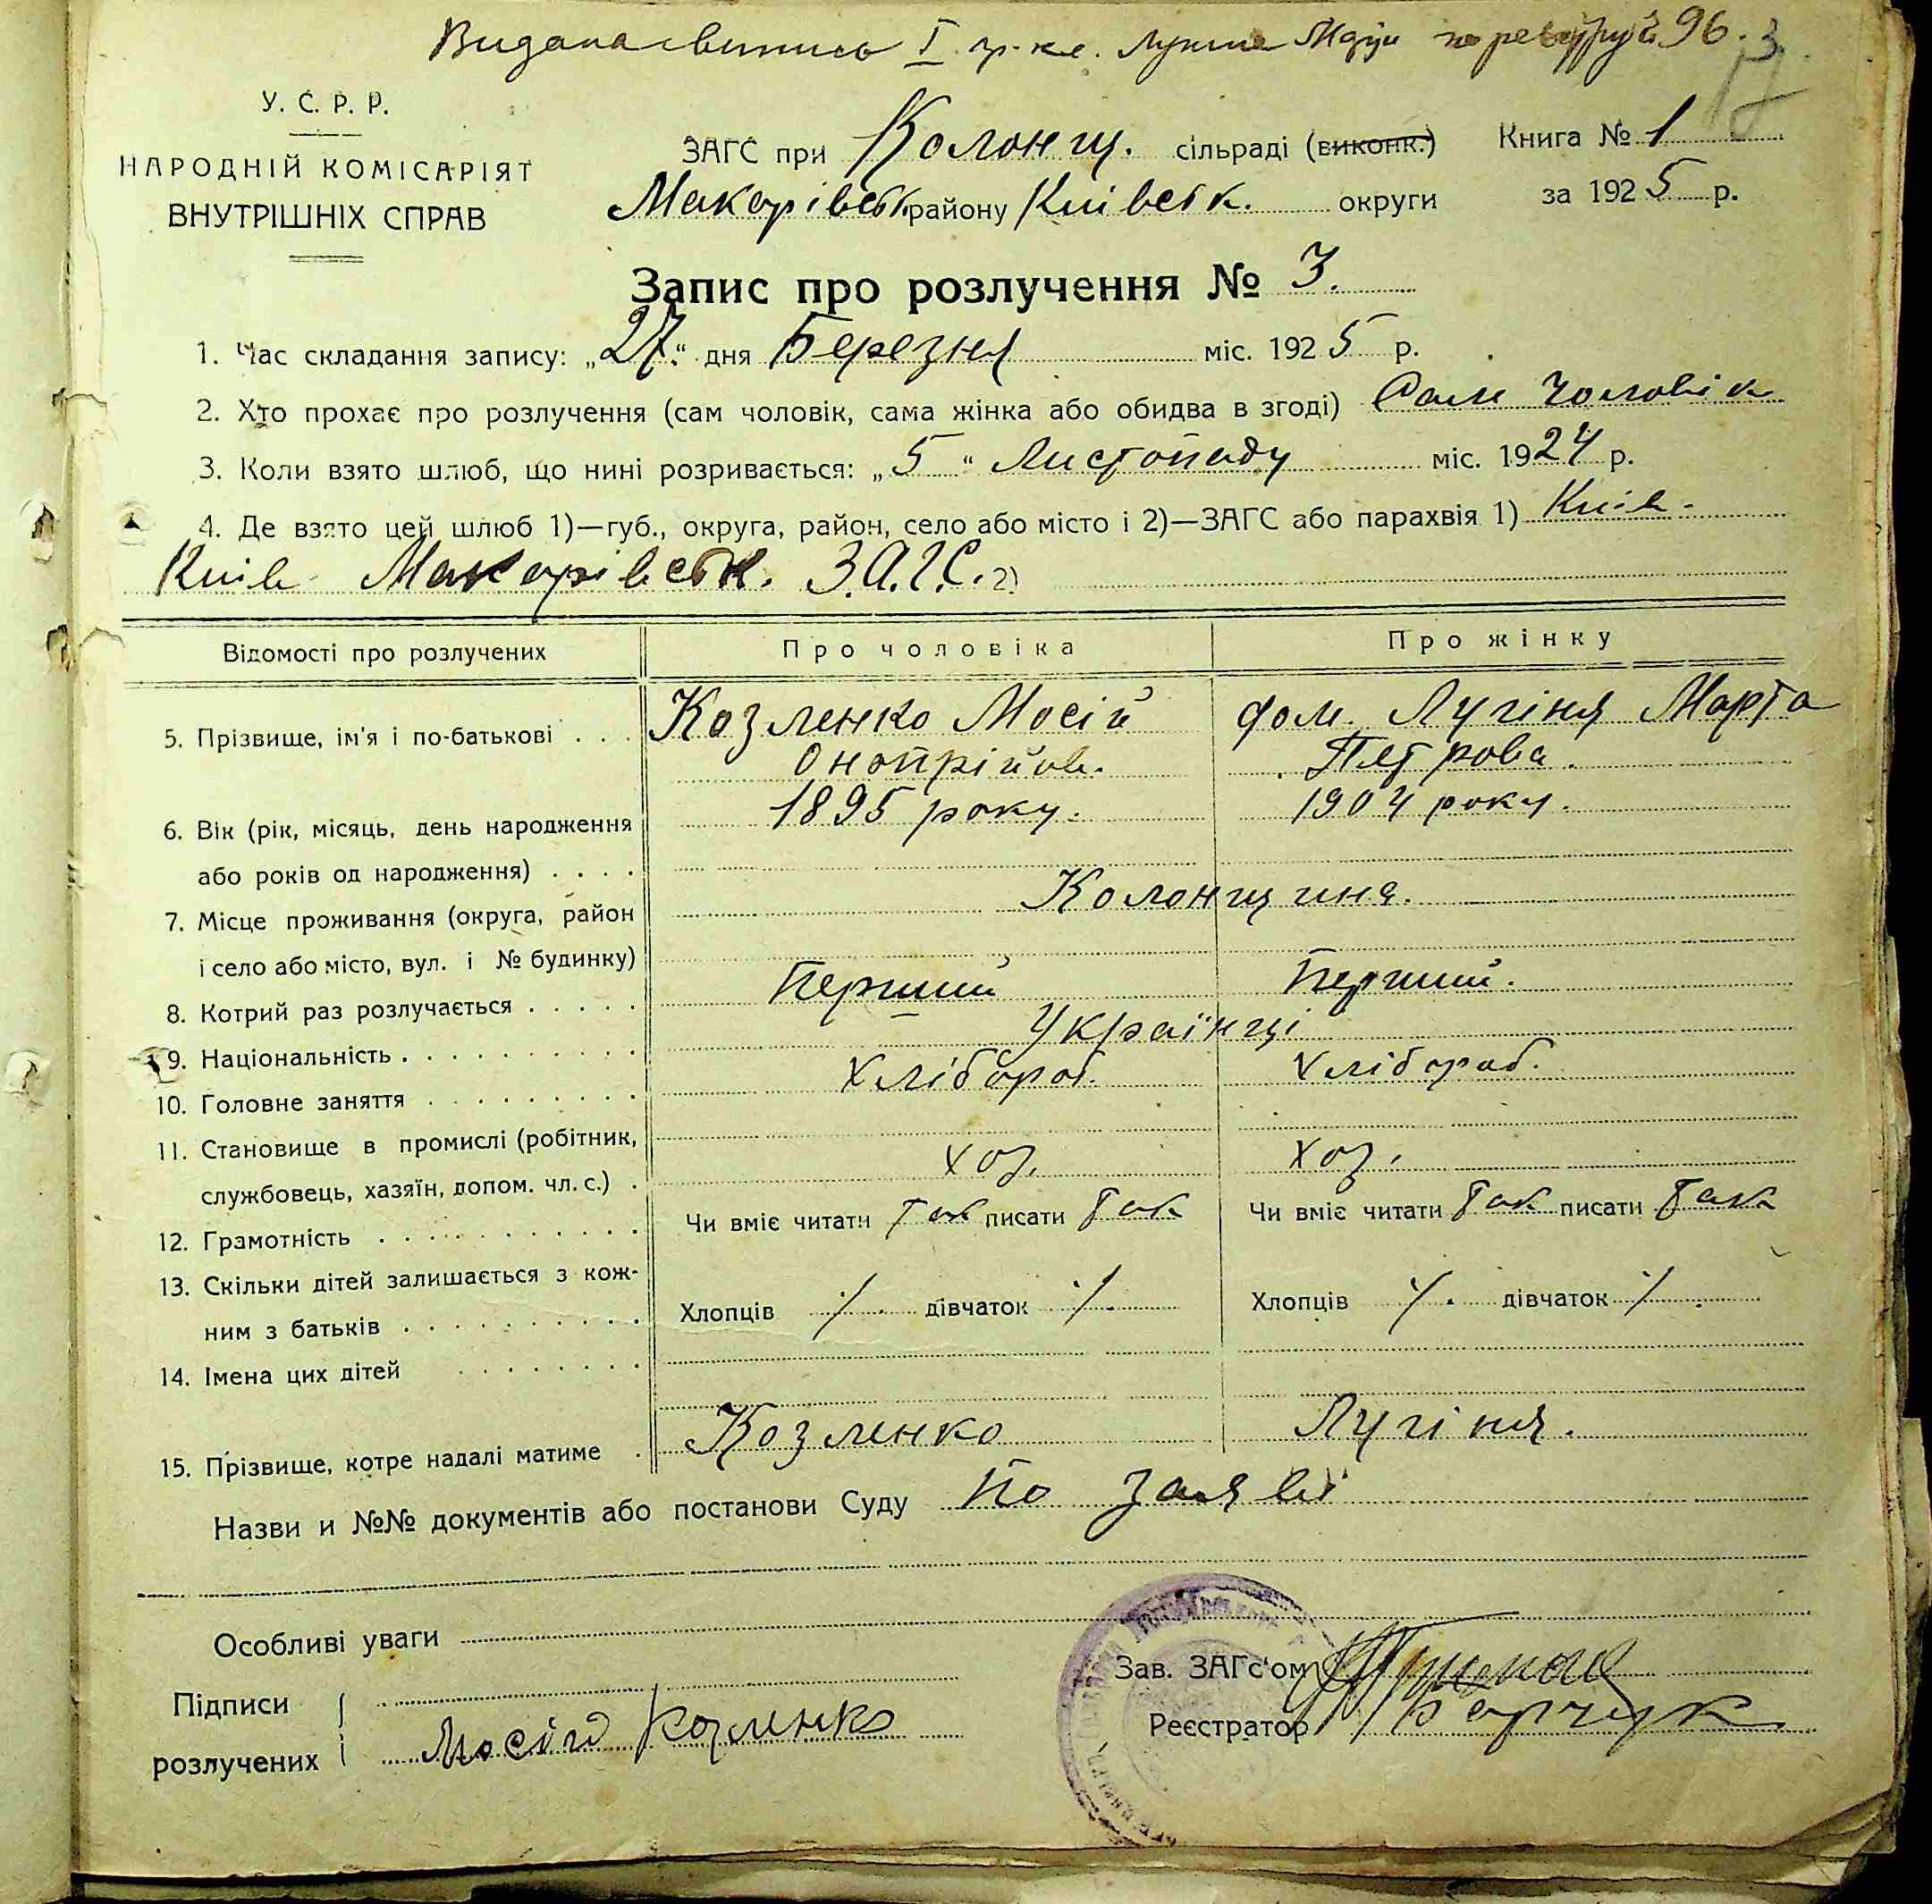 Видана випись I
У. С. Р. Р.
НАРОДНІЙ КОМІСАРІЯТ
ВНУТРІШНІХ СПРАВ
ЗАГС при Колонщ. сільраді (виконк.) Книга № 1
Макарівськ. району Київськ. округи за 1925 р.
Запис про розлучення № 3.
1. Час складання запису: „27“ дня Березня міс. 1925 р.
2. Хто прохає про розлучення (сам чоловік, сама жінка або обидва в згоді) Сам чоловік
3. Коли взято шлюб, що нині розривається: „5“ Листопаду міс. 1924 р.
4. Де взято цей шлюб 1)—губ., округа, район, село або місто і 2)—ЗАГС або парахвія 1) Київ.
Київ. Макарівськ. З.А.Г.С. 2)
Відомості про розлучених Про чоловіка Про жінку
5. Прізвище, ім'я і по-батькові . . . Козленко Мосій дом. Лугіня Марта
Онопрійов. Петрова.
6. Вік (рік, місяць, день народження 1895 року. 1904 року.
або років од народження) . . . .
7. Місце проживання (округа, район Колонщина.
і село або місто, вул. і № будинку)
8. Котрий раз розлучається . . . . . Перший Перший.
9. Національність . . . . . . . . . . Українці
10. Головне заняття . . . . . . . . . Хлібороб. Хлібороб.
11. Становище в промислі (робітник,
службовець, хазяїн, допом. чл. с.) . хоз. хоз.
12. Грамотність . . . . . . . . . . . Чи вміє читати Так писати Так Чи вміє читати Так писати Так
13. Скільки дітей залишається з кож-
ним з батьків . . . . . . . . . . Хлопців ·/. дівчаток ·/. Хлопців ·/. дівчаток ·/.
14. Імена цих дітей . . . . . . . .
15. Прізвище, котре надалі матиме . Козленко Лугіня.
Назви и №№ документів або постанови Суду по заяві
Особливі уваги
Підписи
розлучених Мосій Козленко
Зав. ЗАГс'ом
Реєстратор